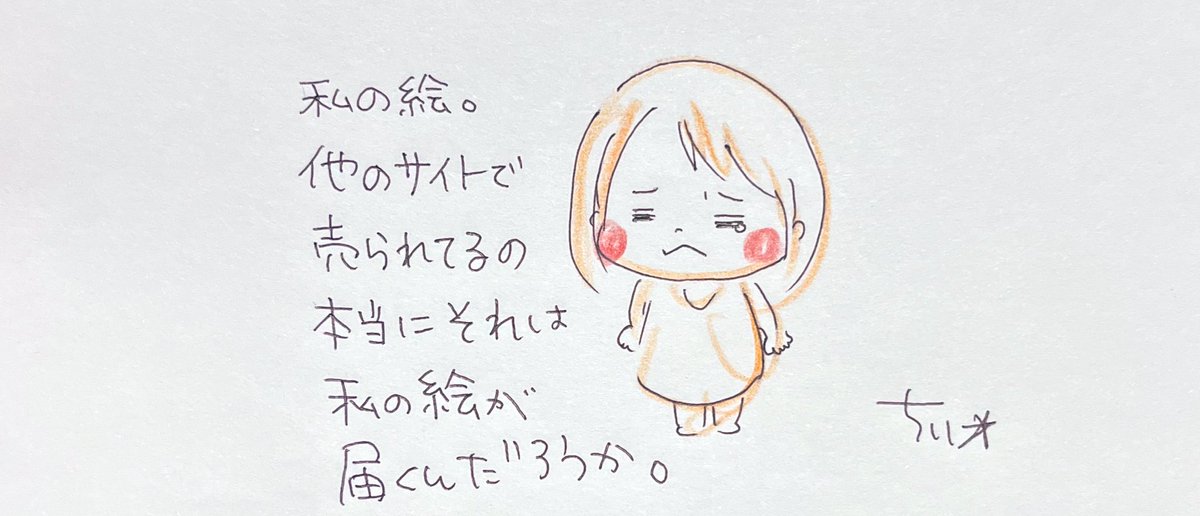 私の絵。
他のサイトで
売られてるの
本当にそれは
私の絵が
届くんだろうか。
ちい*